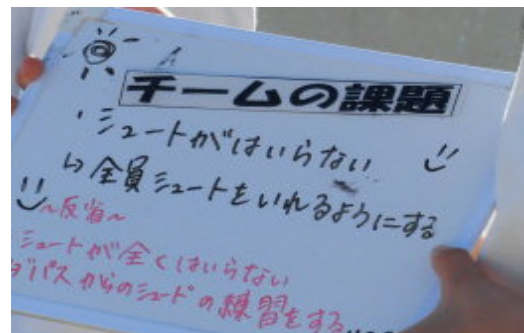 チームの課題
・シュートがはいらない
↳全員シュートをいれるようにする
~反省~
シュートが全くはいらない
パスからのシュートの練習をする